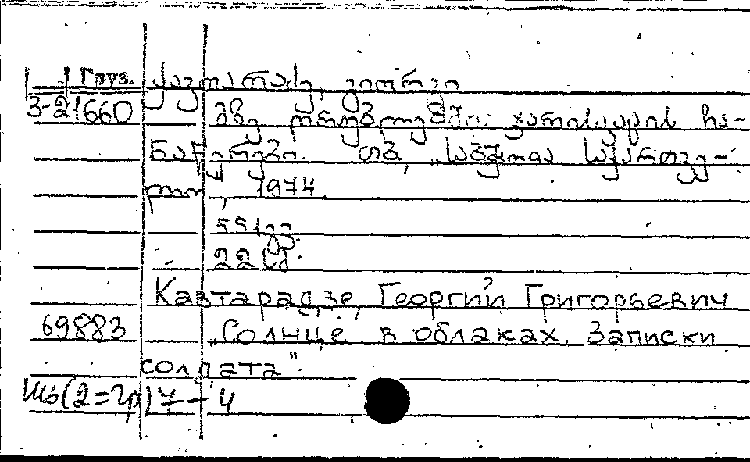 Груз. ქავთარაძე, გიორგი
3-21660 მზე ღრუბლებში. ჯარისკაცის ჩა-
ნაწერები. თბ., „საბჭოთა საქართვე-
ლო", 1974.
55 გვ.
22 სმ.
Кавтарадзе, Георгий Григорьевич
69883 „Солнце в облаках. Записки
солдата".